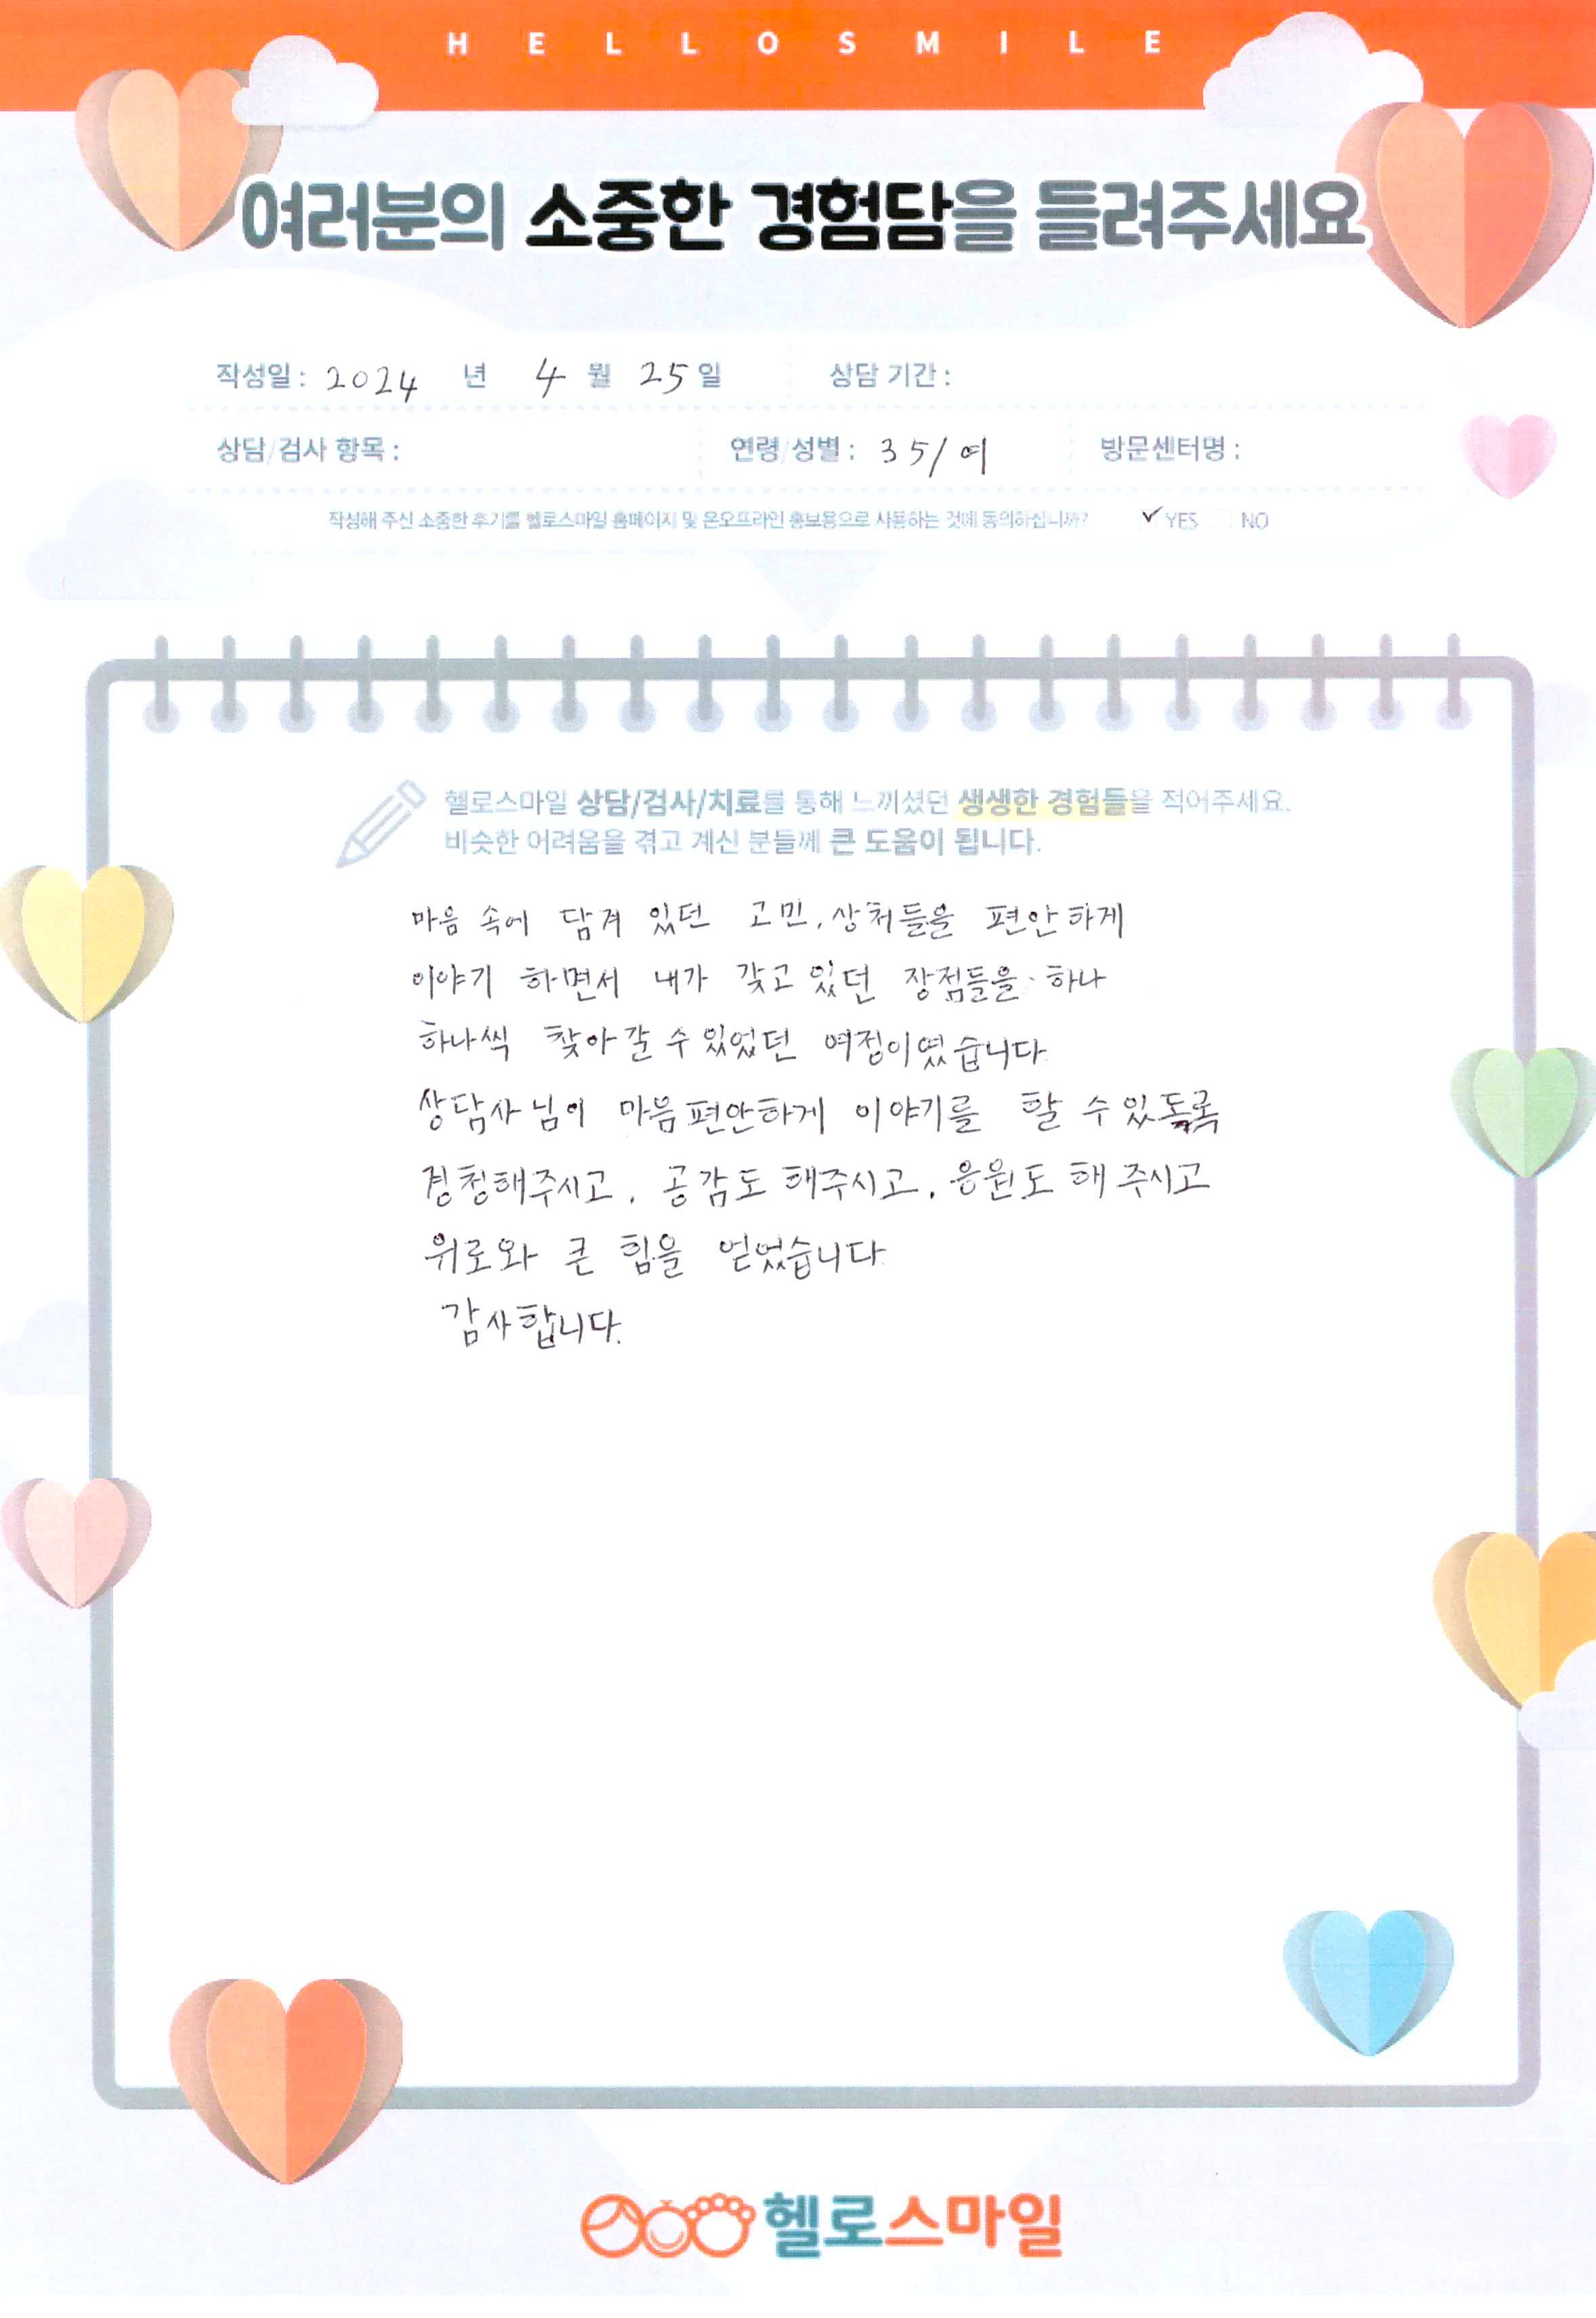 HELLOSMILE
여러분의 소중한 경험담을 들려주세요
작성일 : 2024 년 4 월 25 일 상담 기간 :
상담/검사 항목 : 연령/성별 : 35/여 방문센터명 :
작성해 주신 소중한 후기를 헬로스마일 홈페이지 및 온오프라인 홍보용으로 사용하는 것에 동의하십니까? ✓ YES NO
헬로스마일 상담/검사/치료를 통해 느끼셨던 생생한 경험들을 적어주세요.
비슷한 어려움을 겪고 계신 분들께 큰 도움이 됩니다.
마음 속에 담겨 있던 고민, 상처들을 편안하게
이야기 하면서 내가 갖고 있던 장점들을 하나
하나씩 찾아갈 수 있었던 여정이였습니다.
상담사님이 마음편안하게 이야기를 할 수 있도록
경청해주시고, 공감도 해주시고, 응원도 해 주시고
위로와 큰 힘을 얻었습니다.
감사합니다.
헬로스마일